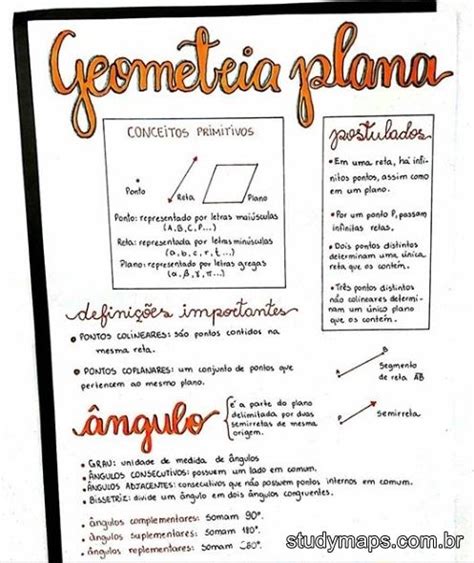 Geometria plana
CONCEITOS PRIMITIVOS
Ponto
Reta
Plano
Ponto: representado por letras maiúsculas
(A, B, C, P...)
Reta: representada por letras minúsculas
(a, b, c, r, t...)
Plano: representado por letras gregas
(α, β, γ, π...)
postulados
• Em uma reta, há infi-
nitos pontos, assim como
em um plano.
• Por um ponto P, passam
infinitas retas.
• Dois pontos distintos
determinam uma única
reta que os contém.
• Três pontos distintos
não colineares determi-
nam um único plano
que os contém.
definições importantes
• PONTOS COLINEARES: são pontos contidos na
mesma reta.
• PONTOS COPLANARES: um conjunto de pontos que
pertencem ao mesmo plano.
A
B
Segmento
de reta AB
P
Semirreta
ângulo
é a parte do plano
delimitada por duas
semirretas de mesma
origem.
• GRAU: unidade de medida de ângulos
• ÂNGULOS CONSECUTIVOS: possuem um lado em comum.
• ÂNGULOS ADJACENTES: consecutivos que não possuem pontos internos em comum.
• BISSETRIZ: divide um ângulo em dois ângulos congruentes.
• ângulos complementares: somam 90°.
• ângulos suplementares: somam 180°.
• ângulos replementares: somam 360°.
studymaps.com.br